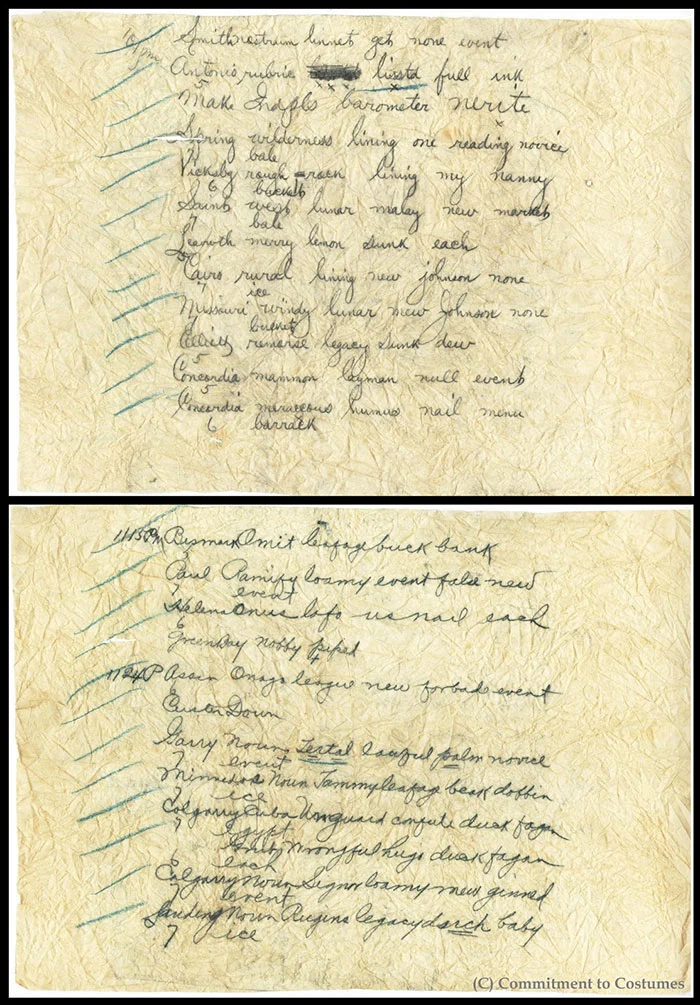 10pm Smith nostrum linnet get none event
Antonio rubric lisstd full ink
5 x x x x
Make Indpls barometer nerite
x
Spring wilderness lining one reading novice
7 bale
Vicksbg rough rack lining my nanny
6 bucket
Saints west lunar malay new market
7 bale
Leavwth merry lemon sunk each
5
Cairo rural lining new johnson none
7 ice
Missouri windy lunar new Johnson none
7 bucket
Celliott remorse legacy sunk dew
5
Concordia mammon layman null event
5
Concordia meraccous humus nail menu
6 barrack
1113PM Bismark Omit leafage buck bank
5
Paul Ramify loamy event false new
7 event
Helena Onus lofo us nail each
6
Green Bay nobby piped
4
1124P Assin Onago league new forbade event
Custer Down
Garry Noun Tertal lawful palm novice
7 event
Minnedos Noun Jammy leafage beak dobbin
7 ice
Calgarry Cuba Unguard confute duck fagan
7 egypt
Wrongful hugo duck fagan
6 each
Calgarry Noun Signor loamy new ginned
7 event
Landing Noun Rugins legacy duck baby
7 ice
(C) Commitment to Costumes